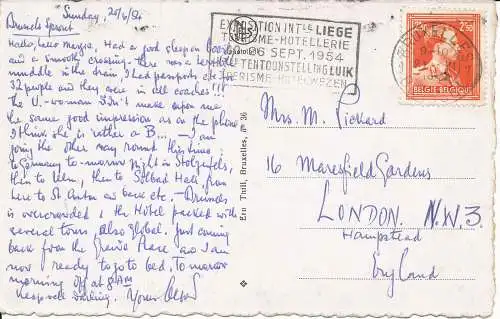 Sunday, 25/6/54
Brussels Sprout
Hallo, hello Maggie, Had a good sleep on board
and a smooth crossing - there was a terrible
muddle in the train, I had passports, etc for
32 people and they were in all coaches!!!
the U.-woman didn't make upon me
the same good impression as on the phone
I think she is rather a B... - I am
going the other way round this time:
to Germany to-morrow night in Stolzenfels,
then to Ulm, then to Solbad Hall, from
here to St. Anton as back etc. - Brussels
is overcrowded & the Hotel packed with
several tours, also global. Just coming
back from the Place and I am
now ready to go to bed. To-morrow
morning off at 8 AM
Keep well darling. Yours
EXPOSITION INTLE LIEGE
TOURISME-HOTELLERIE
SEPT. 1954
INT TENTOONSTELLING LUIK
TOERISME-HOTELWEZEN
BRUXELLES
2F50
BELGIE BELGIQUE
Ern Thill, Bruxelles, No 36
Mrs. M. Pickard
16 Maresfield Gardens
LONDON. N.W.3.
Hampstead
England